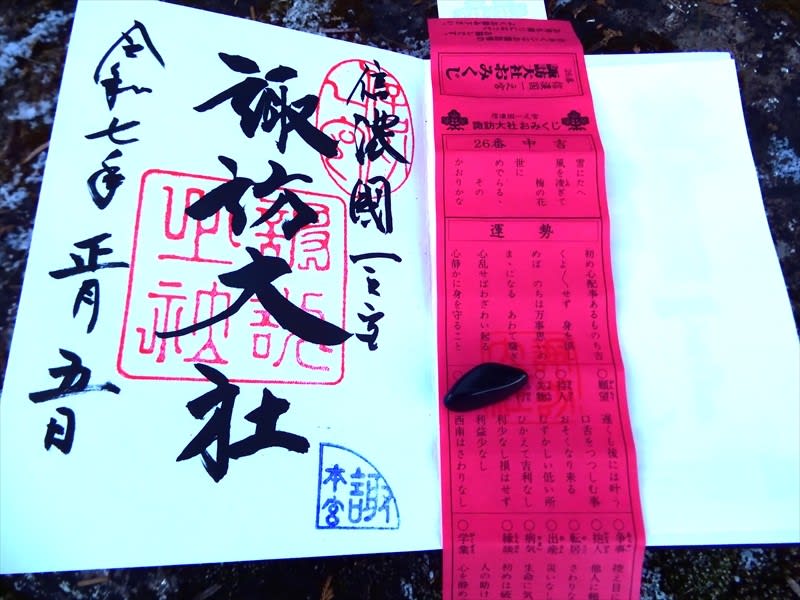 信濃國一之宮
諏訪大社
令和七年
正月
五日
諏訪
之神
本宮
諏
信濃國一之宮
諏訪大社おみくじ
信濃國一之宮
諏訪大社おみくじ
26番 中吉
雪にたへ
風を凌ぎて
梅の花
世に
めでらるゝ
その
かおりかな
運勢
初め心配事あるものち吉
くよ〱せず 身を慎
めば のちは万事思いの
まゝになる あわて騒ぎ
心乱せばわざわい起る
心静かに身を守ること
○願望 遅くも後には叶う
口舌をつつしむ事
○待人 おそくなり来る
むずかしい低い所
ひかえて吉利なし
損はせず
利益少なし
西南はさわりなし
○争事 控え目
○抱人 他人に頼
○転居 さわりな
○出産 災いな
○病気 生命に気
○縁談 初めは破
人の助け
○学業 心を静め